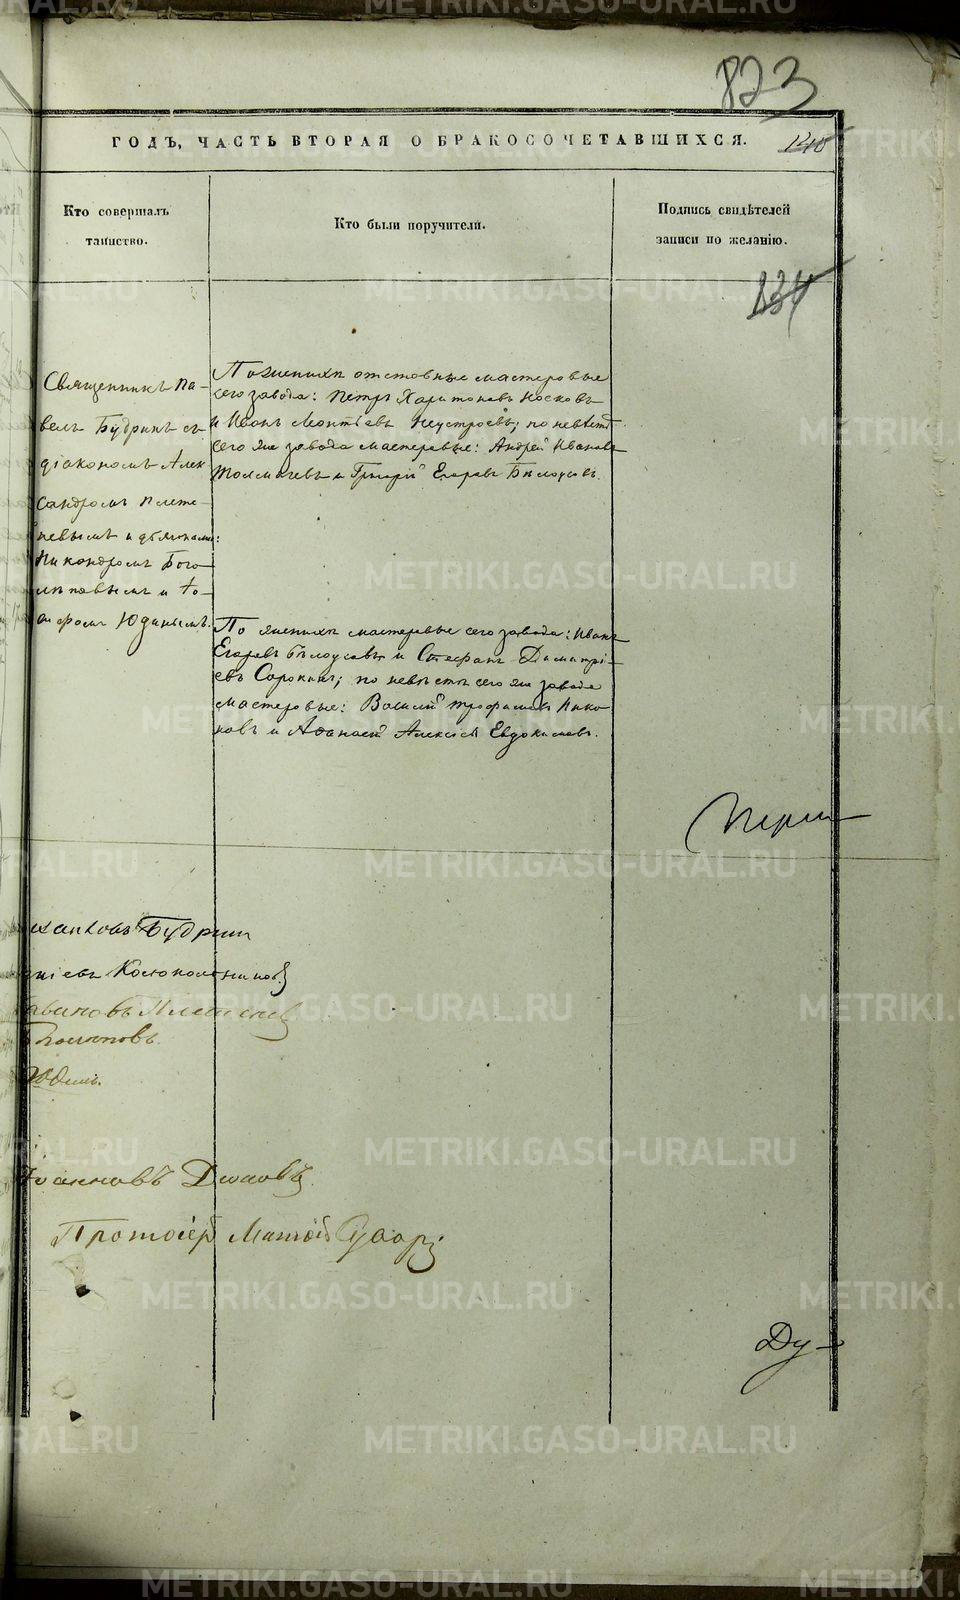 823
ГОДЪ, ЧАСТЬ ВТОРАЯ О БРАКОСОЧЕТАВШИХСЯ.
140
Кто совершалъ
таинство.
Кто были поручители.
Подпись свидѣтелей
записи по желанію.
134
Священникъ Па-
велъ Будринъ съ
діакономъ Алек
сандромъ Плете-
невымъ и дьячками:
Никандромъ Бого-
и Іо-
Юдинымъ.
По женихѣ отставные мастеровые
сего завода: Петръ Харитоновъ Носковъ
и Иванъ Леонтьевъ Неустроевъ; по невѣстѣ
сего же завода мастеровые: Андрей Ивановъ
Толмачевъ и Григорій Егоровъ Бѣлоусовъ.
По женихѣ мастеровые сего завода: Иванъ
Егоровъ Бѣлоусовъ и Стефанъ Димитрі-
евъ Сорокинъ; по невѣстѣ сего же завода
мастеровые: Василій Трофимовъ Нико-
новъ и Афанасій Алексѣевъ Евдокимовъ.
Будрин
Колокольниковъ
Плетенев
Юдинъ.
Іоанновъ
Протоіерей Матѳій
METRIKI.GASO-URAL.RU